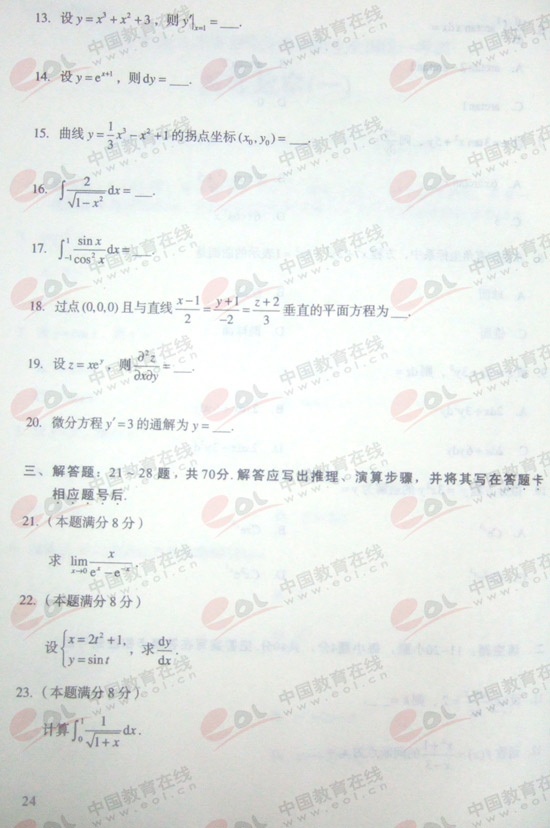 13. 设 y = x³ + x² + 3，则 y′|ₓ₌₁ = ___.
14. 设 y = eˣ⁺¹，则 dy = ___.
15. 曲线 y = 1/3 x³ − x² + 1 的拐点坐标 (x₀, y₀) = ___.
16. ∫ 2/√(1 − x²) dx = ___.
17. ∫₋₁¹ sin x/cos² x dx = ___.
18. 过点 (0,0,0) 且与直线 (x−1)/2 = (y+1)/−2 = (z+2)/3 垂直的平面方程为 ___.
19. 设 z = xeʸ，则 ∂²z/∂x∂y = ___.
20. 微分方程 y′ = 3 的通解为 y = ___.
三、解答题：21～28题，共70分.解答应写出推理、演算步骤，并将其写在答题卡
相应题号后.
21.（本题满分8分）
求 lim x→0 x/(eˣ − e⁻ˣ).
22.（本题满分8分）
设 { x = 2t² + 1, y = sin t ，求 dy/dx.
23.（本题满分8分）
计算 ∫₀¹ 1/√(1 + x) dx.
24
EOL 中国教育在线
www.eol.cn